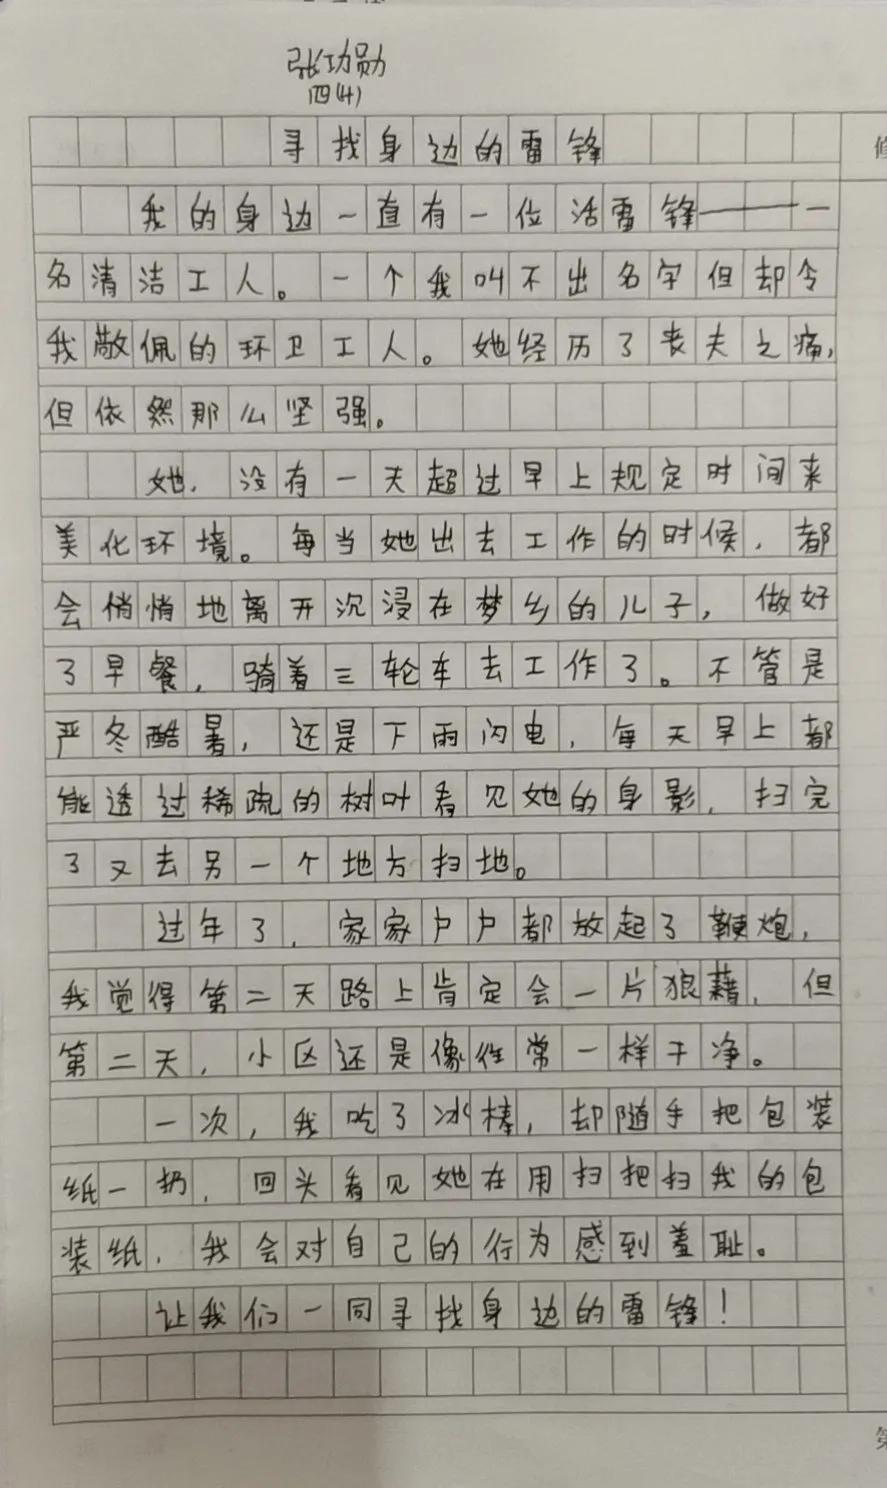 张功勋
四(4)
寻找身边的雷锋
我的身边一直有一位活雷锋——一
名清洁工人。一个我叫不出名字但却令
我敬佩的环卫工人。她经历了丧夫之痛,
但依然那么坚强。
她,没有一天超过早上规定时间来
美化环境。每当她出去工作的时候,都
会悄悄地离开沉浸在梦乡的儿子,做好
了早餐,骑着三轮车去工作了。不管是
严冬酷暑,还是下雨闪电,每天早上都
能透过稀疏的树叶看见她的身影,扫完
了又去另一个地方扫地。
过年了,家家户户都放起了鞭炮,
我觉得第二天路上肯定会一片狼藉,但
第二天,小区还是像往常一样干净。
一次,我吃了冰棒,却随手把包装
纸一扔,回头看见她在用扫把扫我的包
装纸,我会对自己的行为感到羞耻。
让我们一同寻找身边的雷锋!